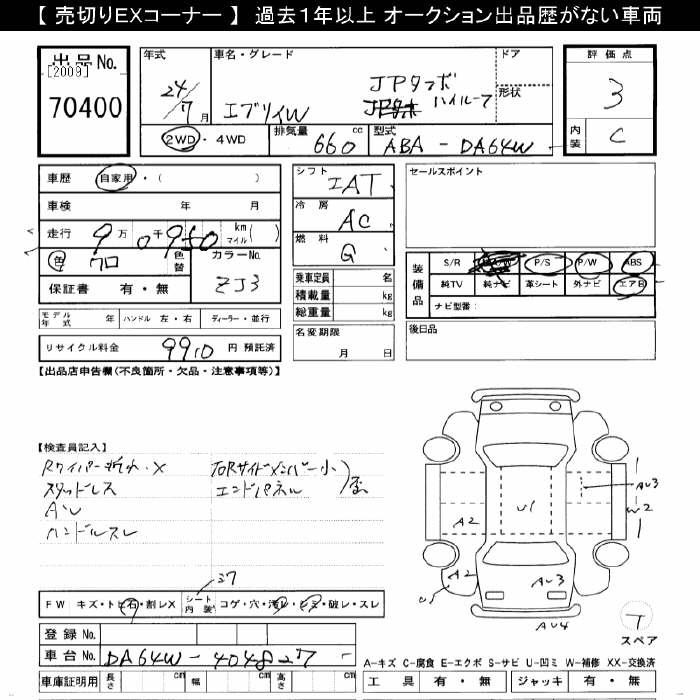 【 売切りEXコーナー 】 過去１年以上 オークション出品歴がない車両
出品No.
[2009]
70400
年式
24/7月
車名・グレード
エブリイW
JPターボ
ハイルーフ
ドア
形状
評価点
3
内装
C
2WD・4WD
排気量 660 cc
型式 ABA - DA64W
車歴 自家用・( )
車検 年 月
走行 9万0千950 km( マイル )
色 クロ
色替
カラーNo.
ZJ3
保証書 有・無
シフト IAT
冷房 AC
燃料 G
乗車定員 名
積載量 kg
総重量 kg
名変期限
月 日
セールスポイント
装備品
S/R P/S P/W ABS
純TV 純ナビ 革シート 外ナビ エアB
ナビ型番:
後日品
モデル年式 年 ハンドル 左・右 ディーラー・並行
リサイクル料金 9910 円 預託済
【出品店申告欄(不良箇所・欠品・注意事項等)】
【検査員記入】
Rワイパー折れ・X
スタッドレス
AW
ハンドルスレ
エンドパネル
A2
U1
AU3
W2
A2
U1
AU3
AU4
37
FW キズ・トビ石・割レX
シート内装 コゲ・穴・汚レ・シミ・破レ・スレ
登録 No.
車台 No. DA64W - 404827
車庫証明用 長さ cm 幅 cm 高さ cm
T
スペア
A-キズ C-腐食 E-エクボ S-サビ U-凹ミ W-補修 XX-交換済
工具 有・無 ジャッキ 有・無